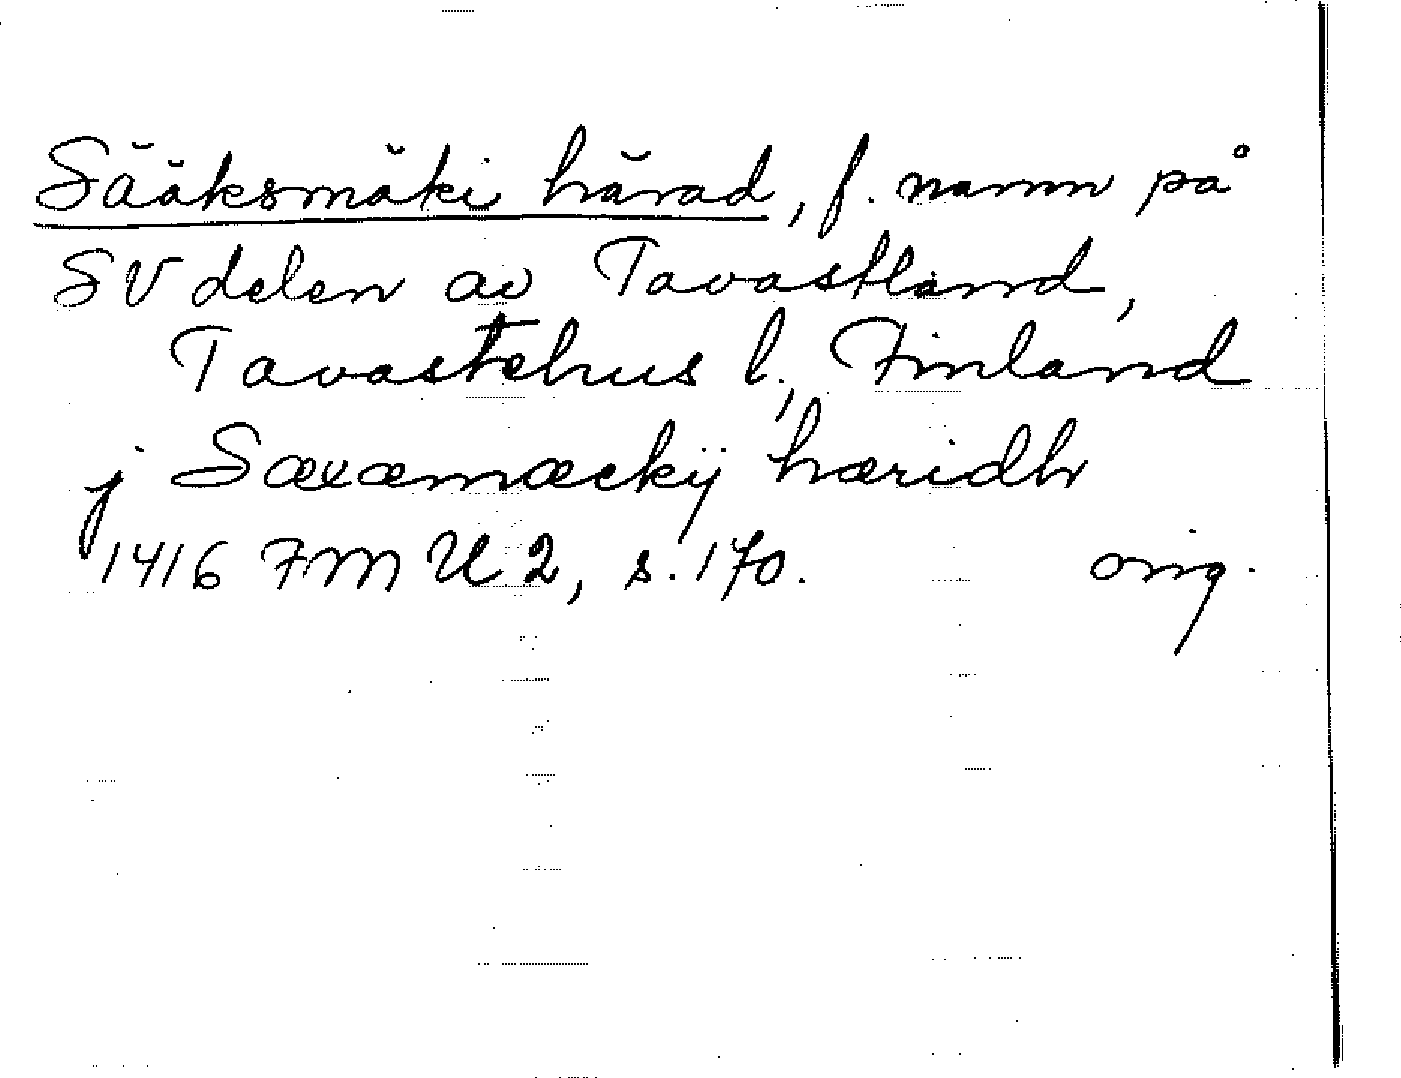 Sääksmäki härad, f. namn på
SV delen av Tavastland,
Tavastehus l., Finland
j Sæxæmæckij hæridh
1416 FMU 2, s. 170. orig.